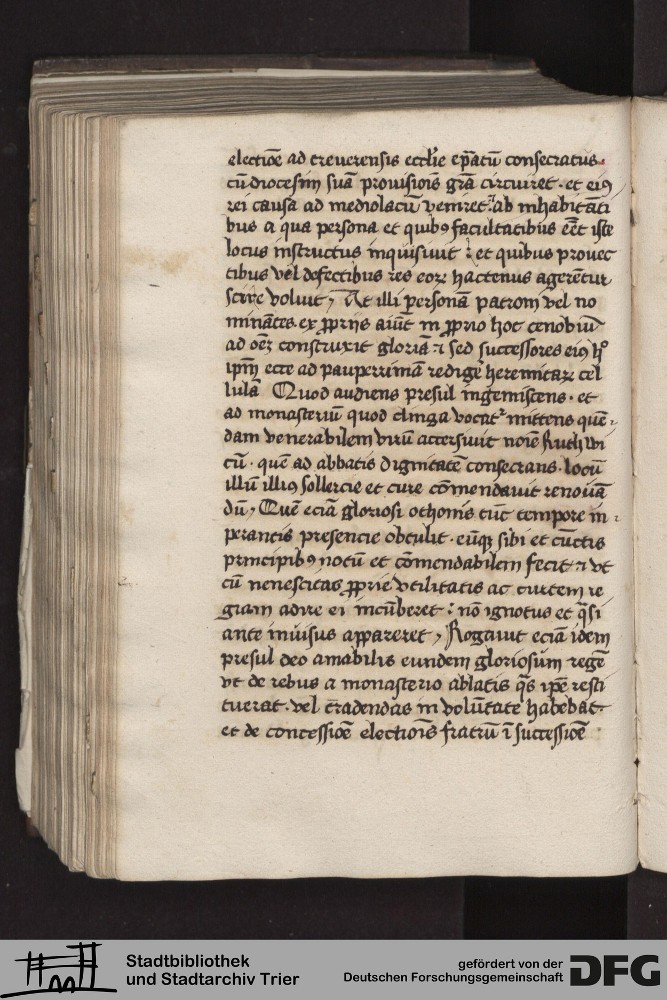 electiōe ad treuerensis eccl'ie ep̄atū consecratus.
cū diocesim suā prouisiōis grā circuiret. et eiꝯ
rei causa ad mediolacū veniret: ab inhabitāti
bus a qua persona et quibꝯ facultatibus eēt iste
locus instructus inquisiuit: et quibus prouec
tibus vel defectibus res eoꝝ hactenus agerentur
scire voluit, At illi personā patroni vel no
minātes. ex ꝓprijs aiūt in ꝓprio hoc cenobiū
ad oēꝫ construxit gloriā: sed successores eiꝯ h°
ip̄m ecce ad pauperrimā redigē heremitaꝝ cel
lulā Quod audiens presul ingemiscens. et
ad monasteriū quod clinga vocatʳ mittens quē
dam venerabilem virū accersiuit noīe Ruthwi
cū. quē ad abbatis dignitatē consecrans. locū
illū illiꝯ sollercie et cure cōmendauit renouā
dū, Quē eciā gloriosi othonis tūc tempore in
perantis presencie obtulit. eūqꝫ sibi et cūctis
principibꝯ notū et cōmendabilem fecit: vt
cū nenescitas ꝓprie vtilitatis ac curtem re
giam adire ei incūberet: nō ignotus et q̄si
ante inuisus appareret, Rogauit eciā idem
presul deo amabilis eundem gloriosum regē
vt de rebus a monasterio ablatis q̄s ip̄e resti
tuerat. vel tradendas in volūtate habebat.
et de concessiōe electiōis fratrū ī successiōe
Stadtbibliothek
und Stadtarchiv Trier
gefördert von der
Deutschen Forschungsgemeinschaft
DFG